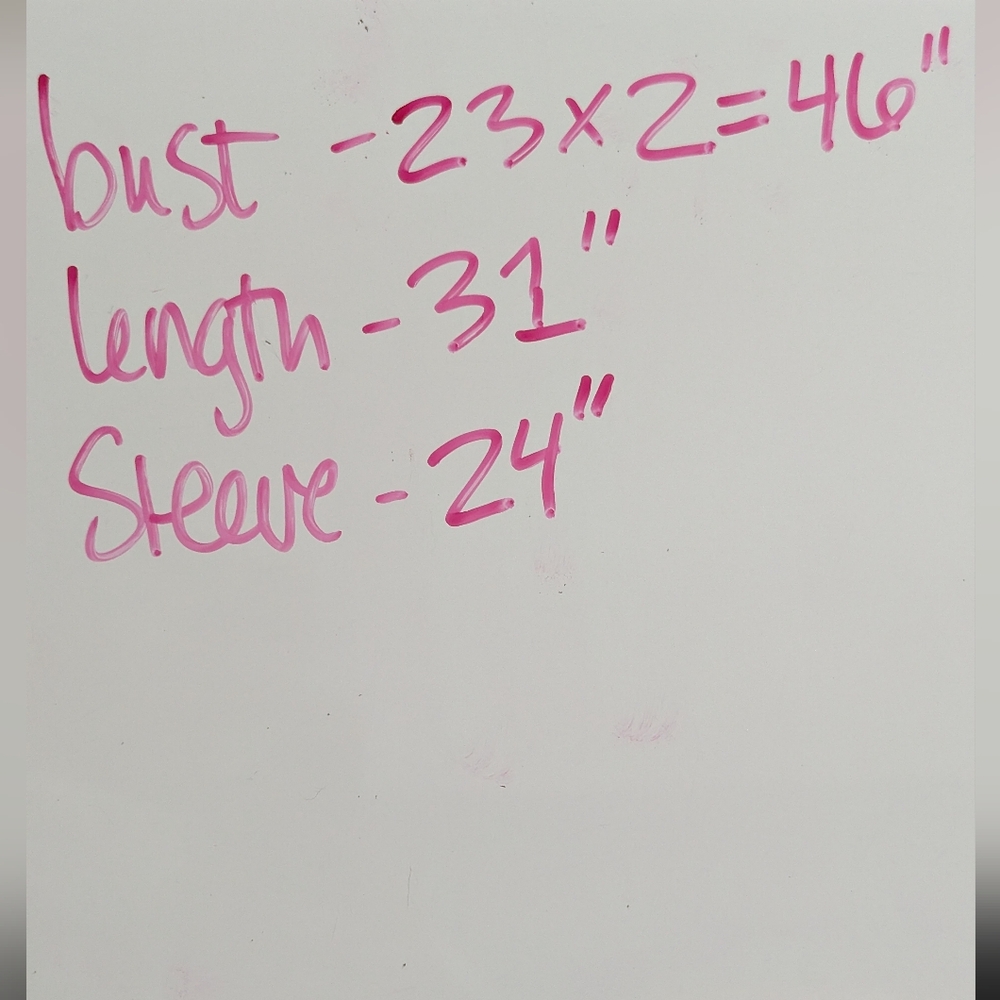 bust - 23 x 2 = 46"
length - 31"
Sleeve - 24"